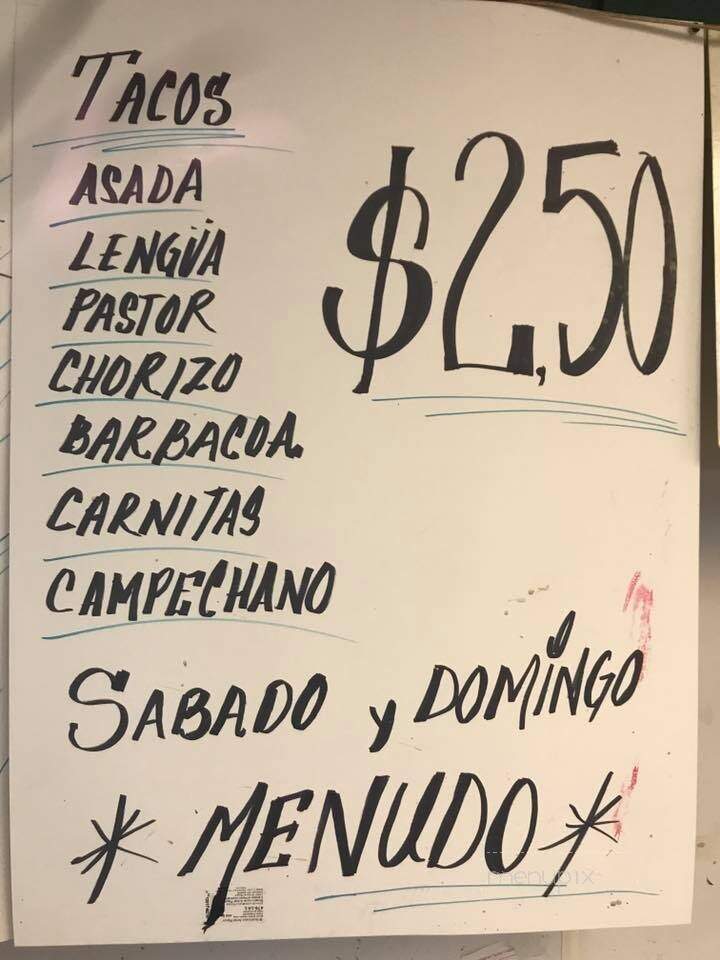 TACOS
$2,50
ASADA
LENGÜA
PASTOR
CHORIZO
BARBACOA
CARNITAS
CAMPECHANO
SABADO y DOMINGO
* MENUDO *
menupix